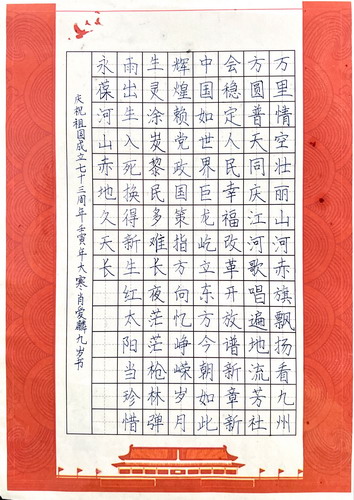 万里情空壮丽山河赤旗飘扬看九州
方圆普天同庆江河歌唱遍地流芳社
会稳定人民幸福改革开放谱新章新
中国如世界巨龙屹立东方今朝如此
辉煌赖党政国策指方向忆峥嵘岁月
生灵涂炭黎民多难长夜茫茫枪林弹
雨出生入死换得新生红太阳当珍惜
永葆河山赤地久天长
庆祝祖国成立七十三周年壬寅年大寒肖爱麟九岁书